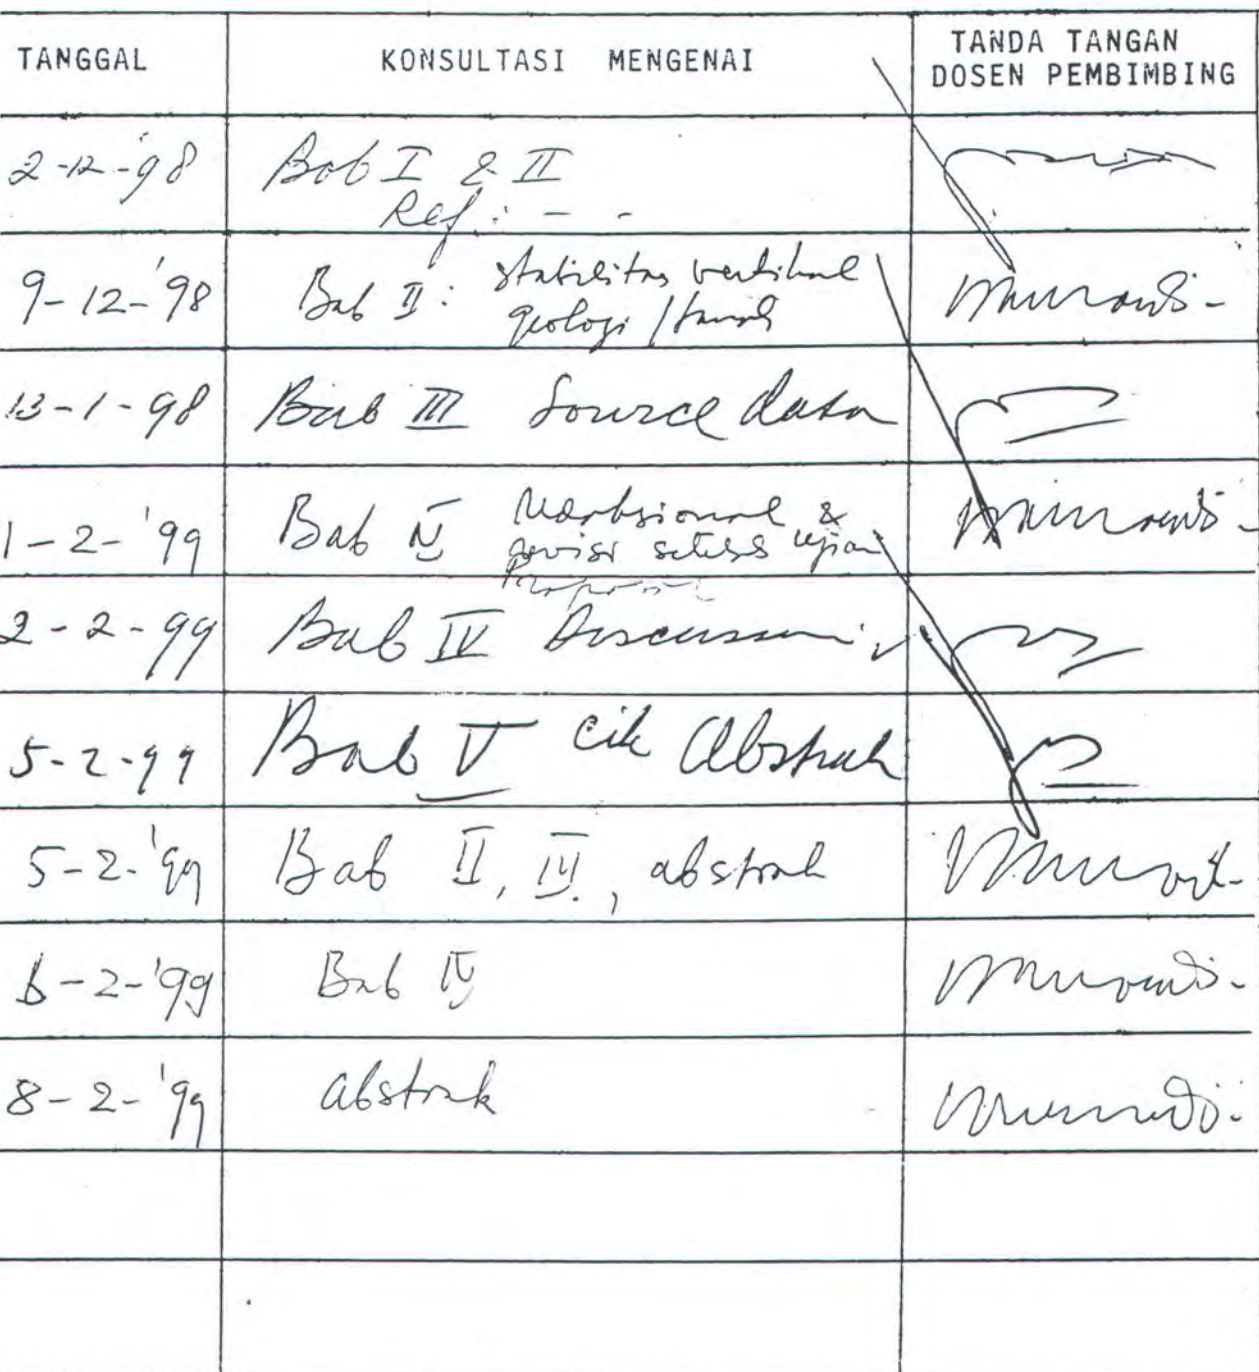 TANGGAL KONSULTASI MENGENAI TANDA TANGAN
DOSEN PEMBIMBING
2-12-'98 Bab I & II
Ref : - -
9-12-'98 Bab II : stabilitas vertikal
geologi /tanah
13-1-98 Bab III Source data
1-2-'99 Bab IV &
revisi ujian
Proposal
2-2-99 Bab IV
5-2-99 Bab V Abstrak
5-2-'99 Bab II, IV, abstrak
6-2-'99 Bab IV
8-2-'99 abstrak